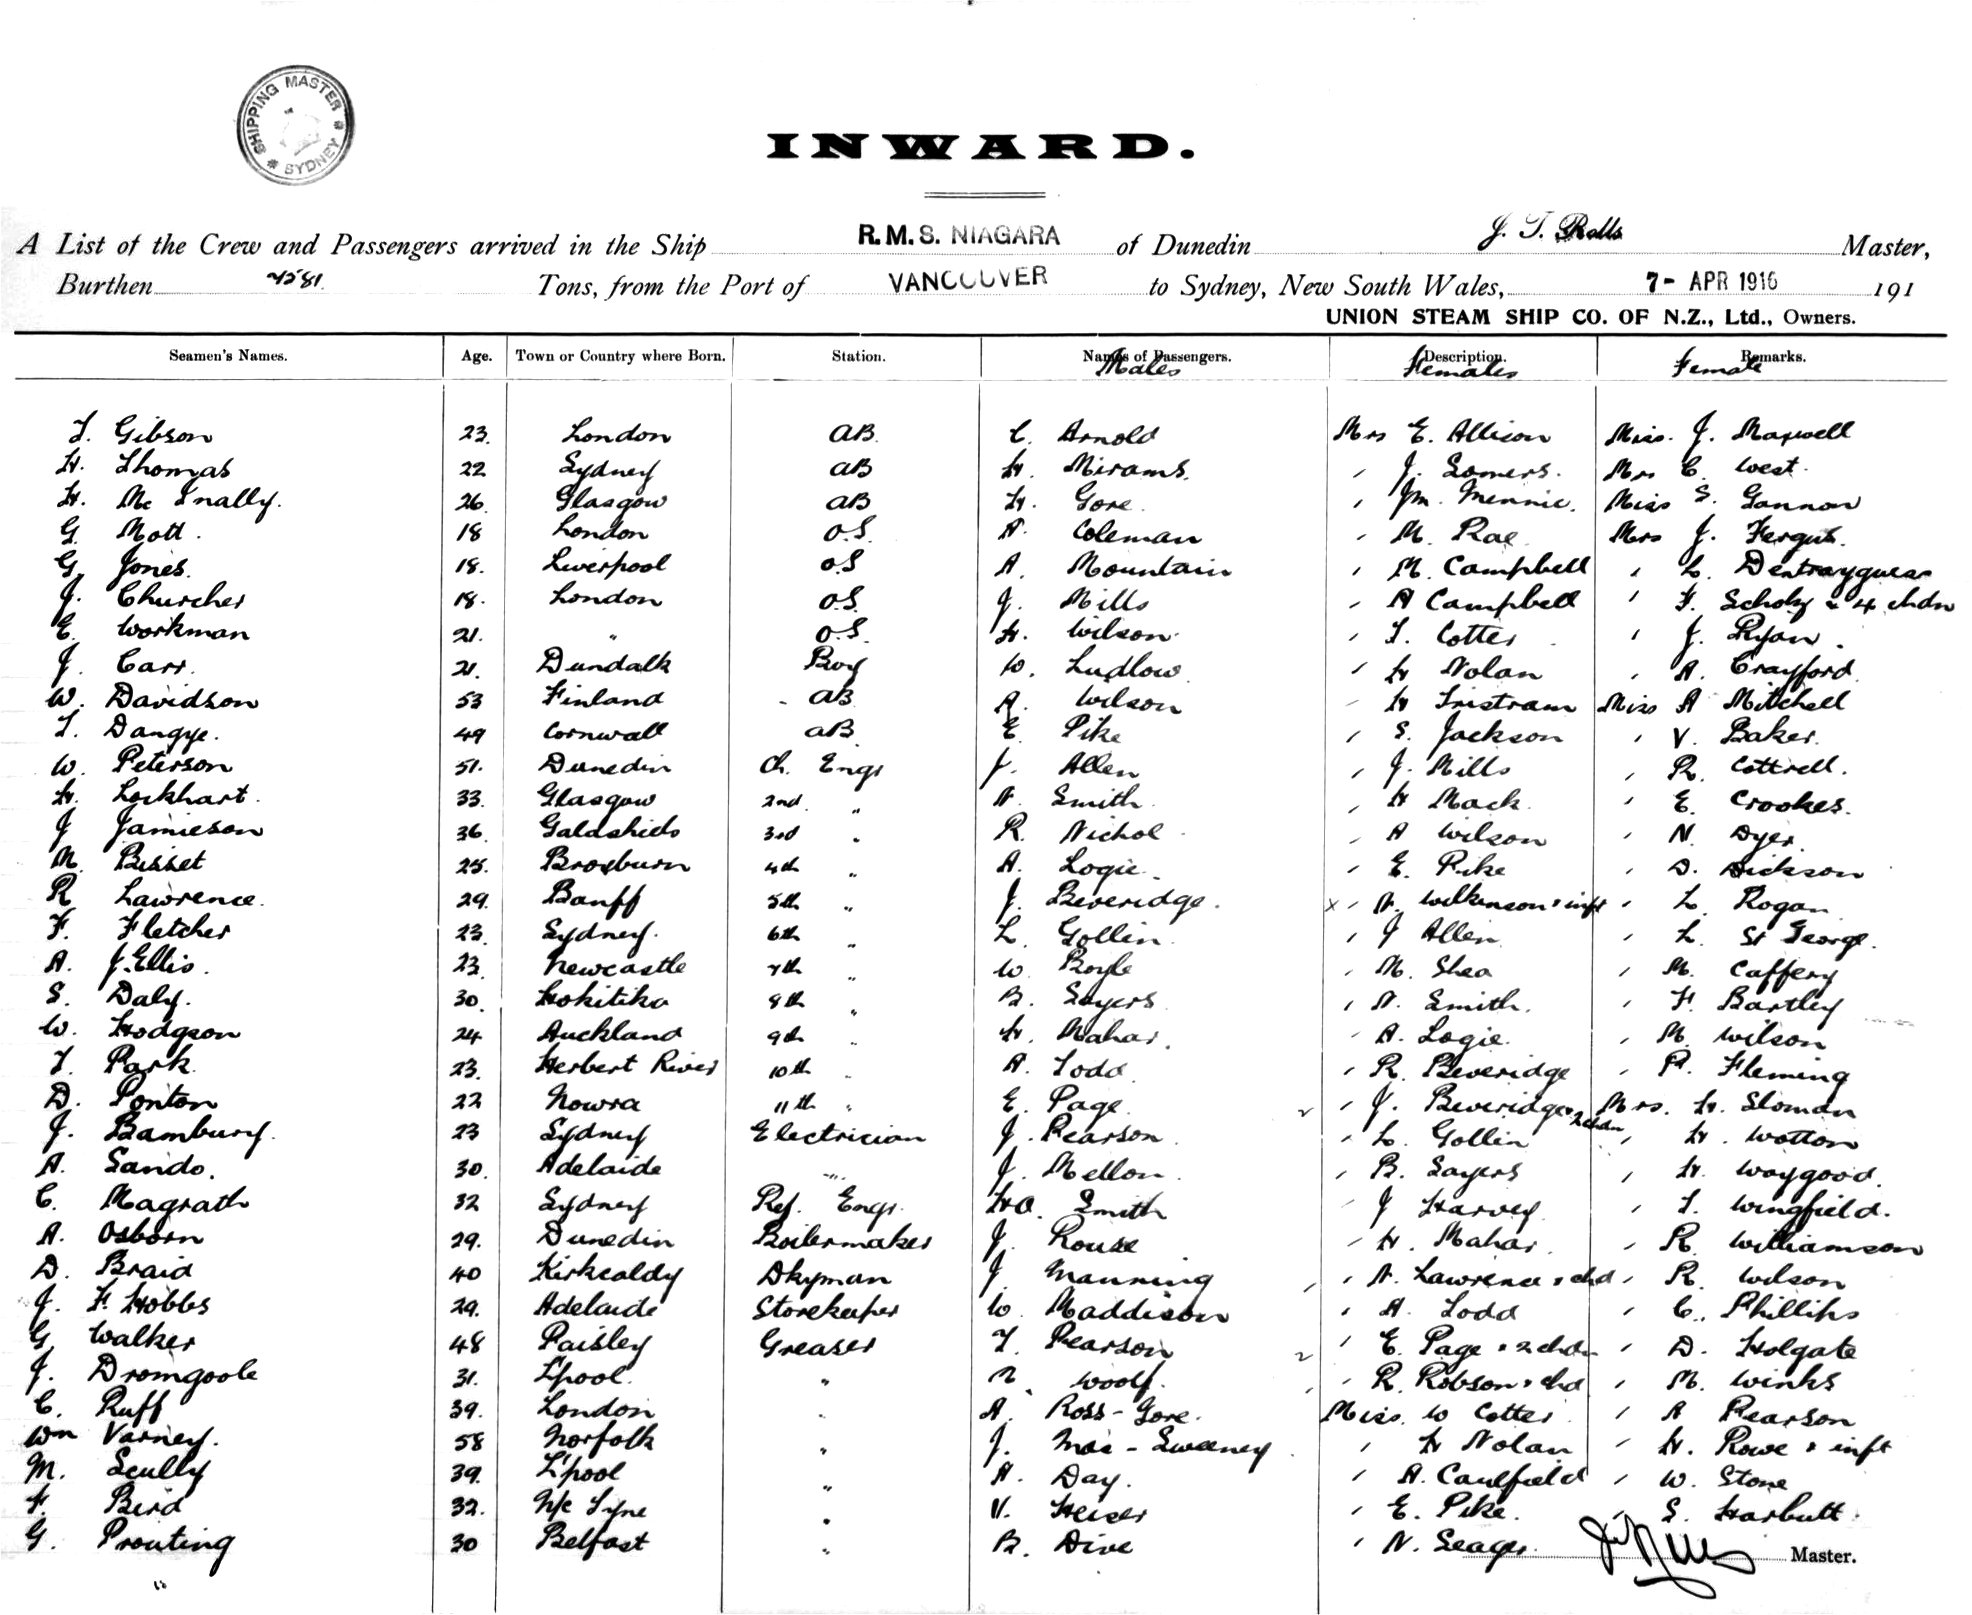 SHIPPING MASTER SYDNEY
INWARD.
A List of the Crew and Passengers arrived in the Ship R.M.S. NIAGARA of Dunedin J. T. Rolls Master,
Burthen 7581. Tons, from the Port of VANCOUVER to Sydney, New South Wales, 7- APR 1916 191
UNION STEAM SHIP CO. OF N.Z., Ltd., Owners.
Seamen's Names. Age. Town or Country where Born. Station. Names of Passengers. Description. Remarks.
Males Females Female
T. Gibson 23. London AB. C. Arnold Mrs E. Allison Miss. J. Maxwell
H. Thomas 22 Sydney AB H. Mirams. " J. Somers. Mrs C. West.
H. Mc Inally. 26. Glasgow AB H. Gore. " Jm. Mennie. Miss S. Gannon
G. Mott. 18 London O.S. A. Coleman " M. Rae Mrs J. Fergus.
G. Jones. 18. Liverpool O.S A. Mountain " M. Campbell " L. Dentraygues
J. Churcher 18. London O.S. J. Mills " A Campbell " F. Scholz & 4 chdn
E. Workman 21. " O.S. H. Wilson " T. Cotter " J. Ryan.
J. Carr. 21. Dundalk Boy W. Ludlow " H Nolan " A. Crayford
W. Davidson 53 Finland AB A. Wilson " H Tristram Miss A Mitchell
T. Dangye. 49 Cornwall AB E. Pike " S. Jackson " V. Baker.
W. Peterson 51. Dunedin Ch. Engr J. Allen " J. Mills " R. Cottrell.
H. Lockhart. 33. Glasgow 2nd " A. Smith " H Mack " E. Crookes.
J Jamieson 36. Galashiels 3rd " R. Nichol " A Wilson " N. Dyer.
M. Bisset 25. Broxburn 4th " A. Logie. " E. Pike " D. Dickson
R Lawrence. 29. Banff 5th " J. Beveridge. x " A. Wilkinson & inft " L. Rogan
F. Fletcher 23. Sydney. 6th " L. Gollin " J Allen " L. St George.
A. J. Ellis. 23. Newcastle 7th " W Boyle " M. Shea " M. Caffery
S. Daly. 30. Hokitika 8th " B. Sayers " A. Smith. " F. Bartley
W. Hodgson 24 Auckland 9th " H. Mahar. " A. Logie. " M. Wilson
T. Park. 23. Herbert River 10th " A. Todd " R. Beveridge " R. Fleming
D. Ponton 22 Nowra 11th " E. Page 2 " J. Beveridge & 2 chdn Mrs. H. Sloman
J. Bambury. 23 Sydney Electrician J. Pearson " L. Gollin " H. Wotton
A. Sando. 30. Adelaide " J. Mellon. " B. Sayers " H. Waygood.
C. Magrath 32 Sydney Ref. Engr. HO. Smith " J Harvey " T. Wingfield.
A. Osborn 29. Dunedin Boilermaker J. Rouse " H. Mahar. " R. Williamson
D. Braid 40 Kirkcaldy Dkyman J. Manning " A. Lawrence & chd " R. Wilson
J. F. Hobbs 29. Adelaide Storekeeper W. Maddison " A. Todd " C. Phillips
G. Walker 48 Paisley Greaser T. Pearson 2 " E. Page & 2 chdn " D. Holgate
J. Dromgoole 31. L'pool. " Woolf. " R. Robson & chd " M. Winks
C. Ruff 39. London " A. Ross-Gore. Miss. W Cotter " A Pearson
Wm Varney. 58 Norfolk " J. Mac-Sweeney " H Nolan " H. Rowe & inft
M. Scully 39. L'pool " A. Day. " A. Caulfield " W. Stone
F. Bird 32. N/c Tyne " V. Heiser " E. Pike. " S. Harbutt.
G. Prouting 30 Belfast " B. Dive " N. Seager.
Master.